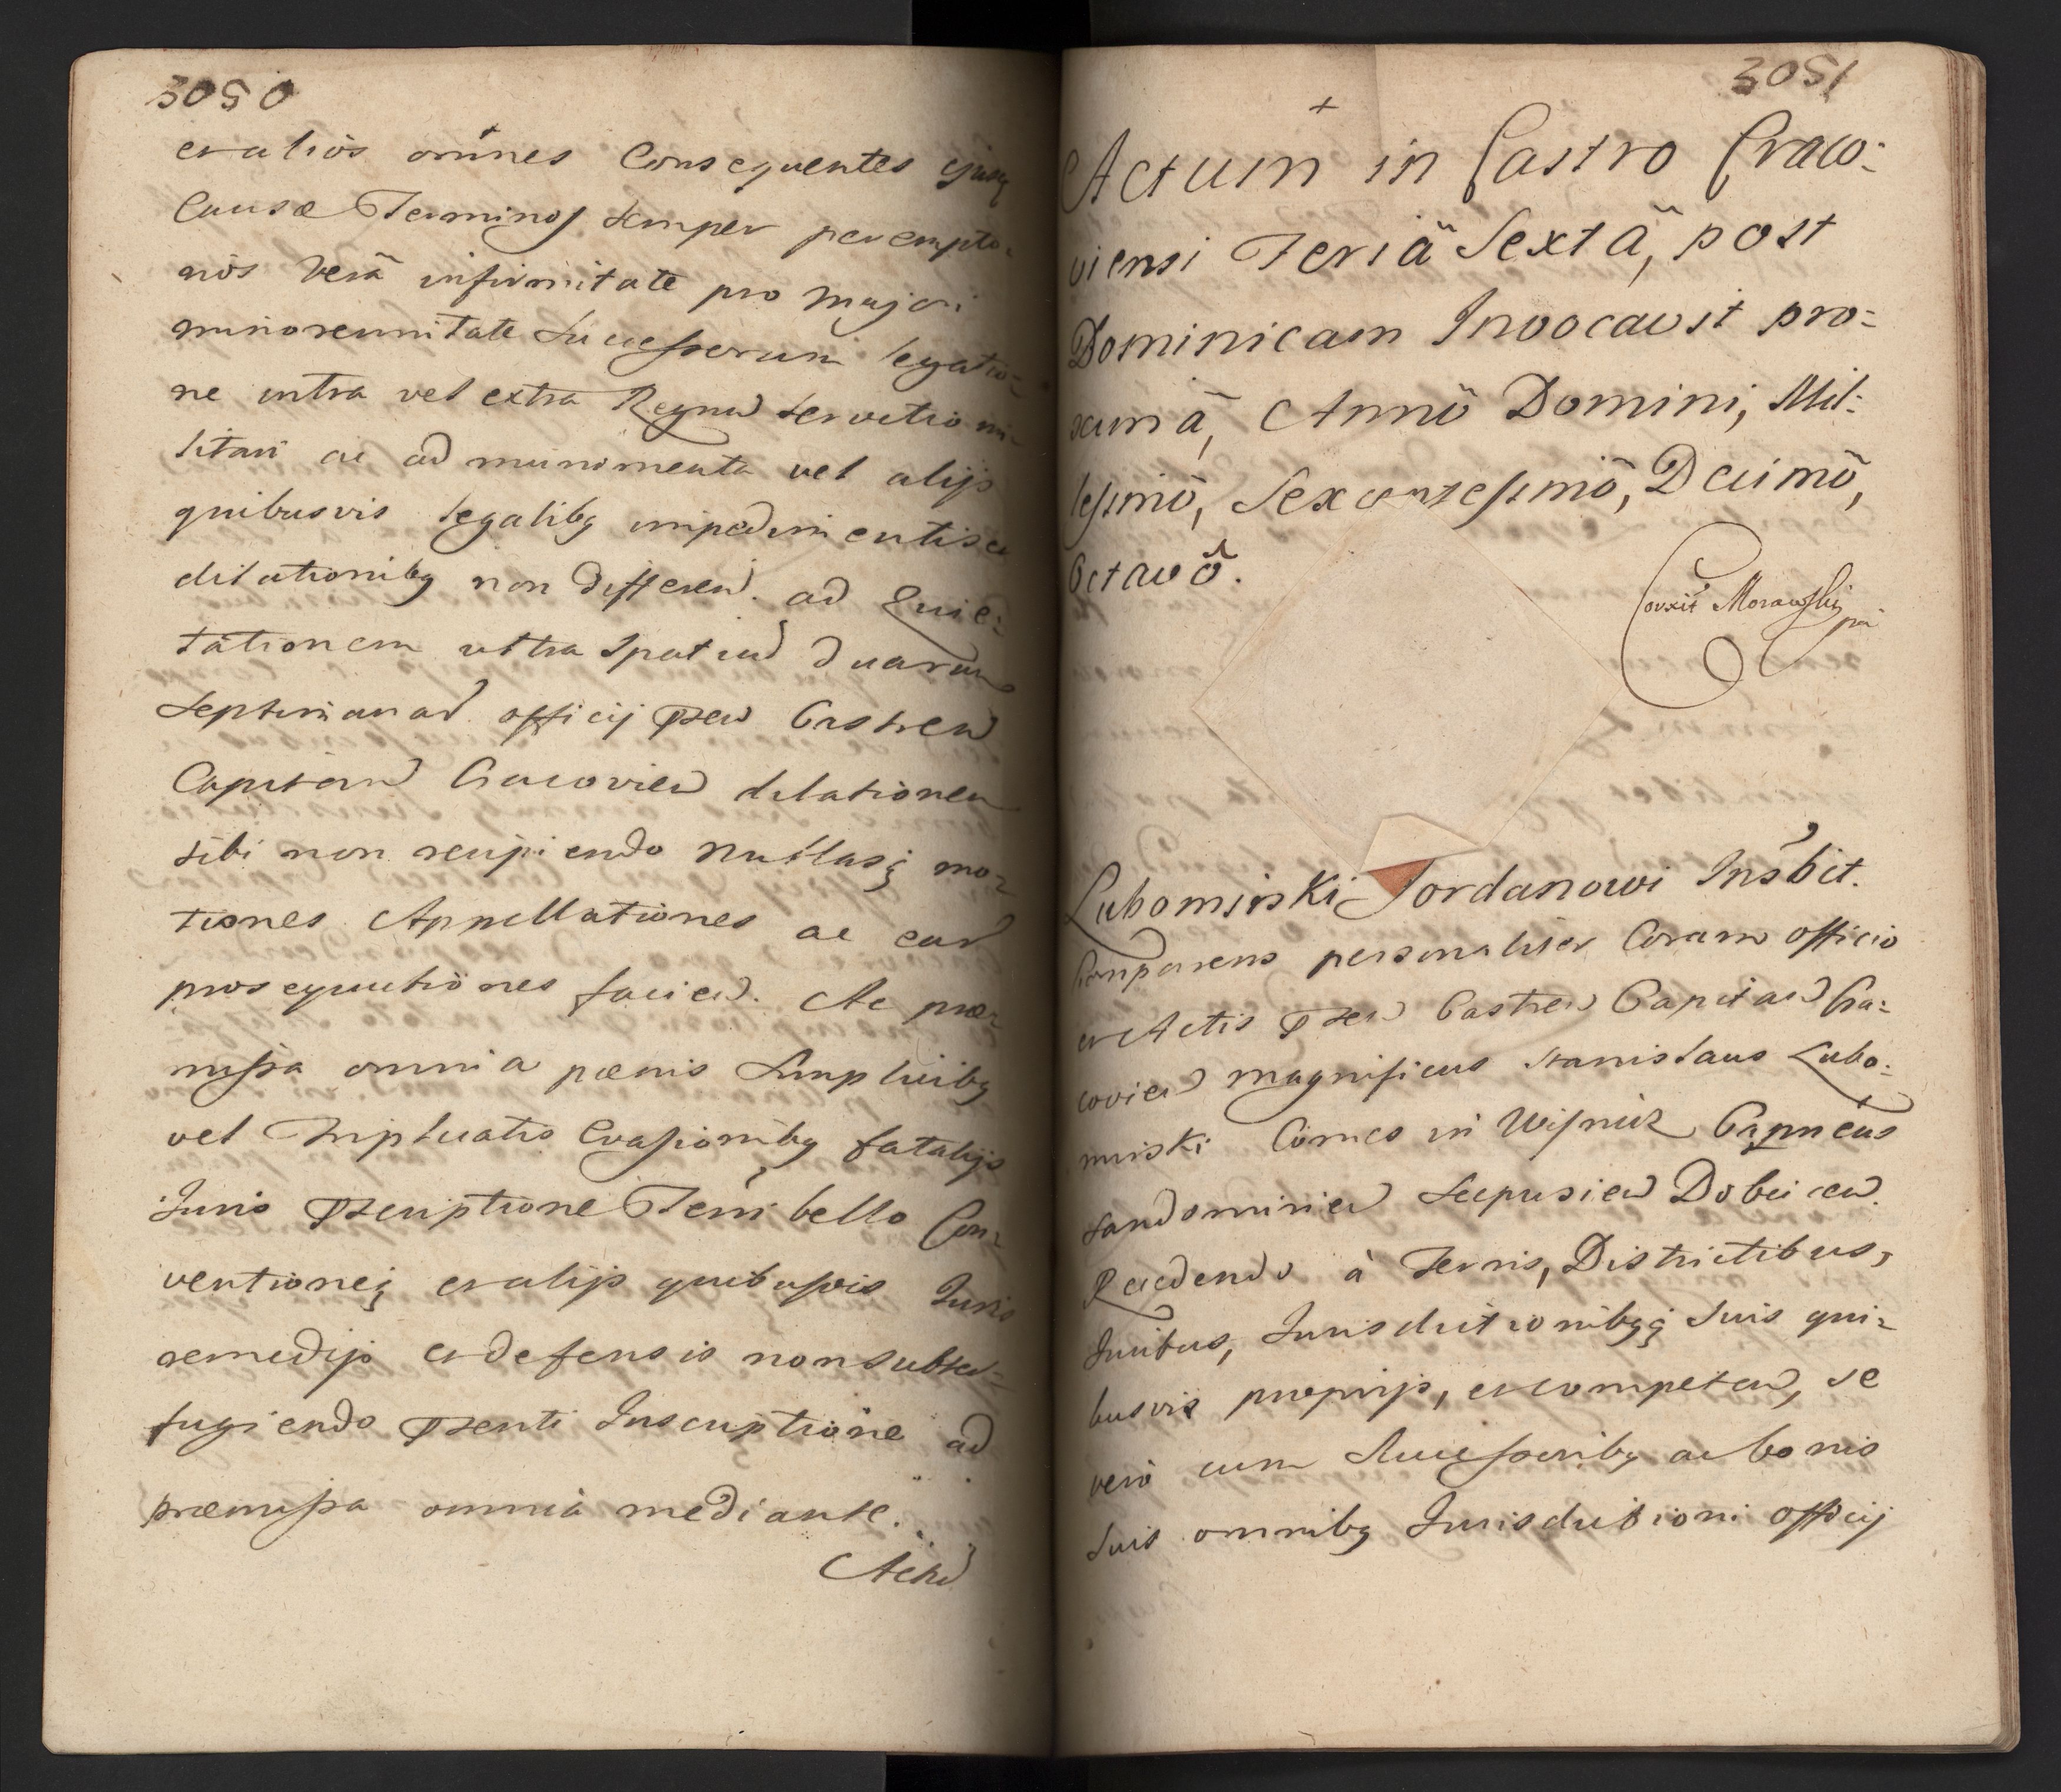 3050
et alios omnes Consequentes ejusq
Causæ Terminos semper perempto-
rios verâ infirmitate pro majori
minorennitate Successorum legatio-
ne intra vel extra Regnu servitio mi-
litari ac ad munimenta vel alijs
quibusvis legalibq impedimentis et
dilationibq non differen. ad Quie-
tationem ultra Spatiu duarum
septimanar officij Psen Castren
Capitan Cracovien dilationem
sibi non recipiendo nullasq mo-
tiones Appellationes ac ear
prosequutiones facien. Ac præ-
missa omnia pænis Simplicibq
vel Triplicatis Evasionibq fatalijs
Juris Pscriptione Terri bello Con-
ventioneq et alijs quibusvis Juris
remedijs et defensis non subter-
fugiendo Psenti Inscriptione ad
præmissa omnia mediante.
Actu
3051
+
Actum in Castro Craco-
viensi Feriâ Sextâ, post
Dominicam Invocavit pro-
ximâ, Annô Domini, Mil-
lesimô, Sexcentesimô, Decimô,
Octavô.
Corxit Morawski
Lubomirski Jordanowi Insbit.
Comparens personaliter Coram officio
et Actis Psen Castren Capitan Cra-
covien magnificus Stanislaus Lubo-
mirski Comes in Wisnicz Capneus
Sandomirien Scepusien Dobcicen.
Recedendo à Terris, Districtibus,
Juribus, Jurisdictionibqq suis qui-
busvis proprijs, et competen, se
vero cum Successoribq ac bonis
suis omnibq Jurisdictioni officij